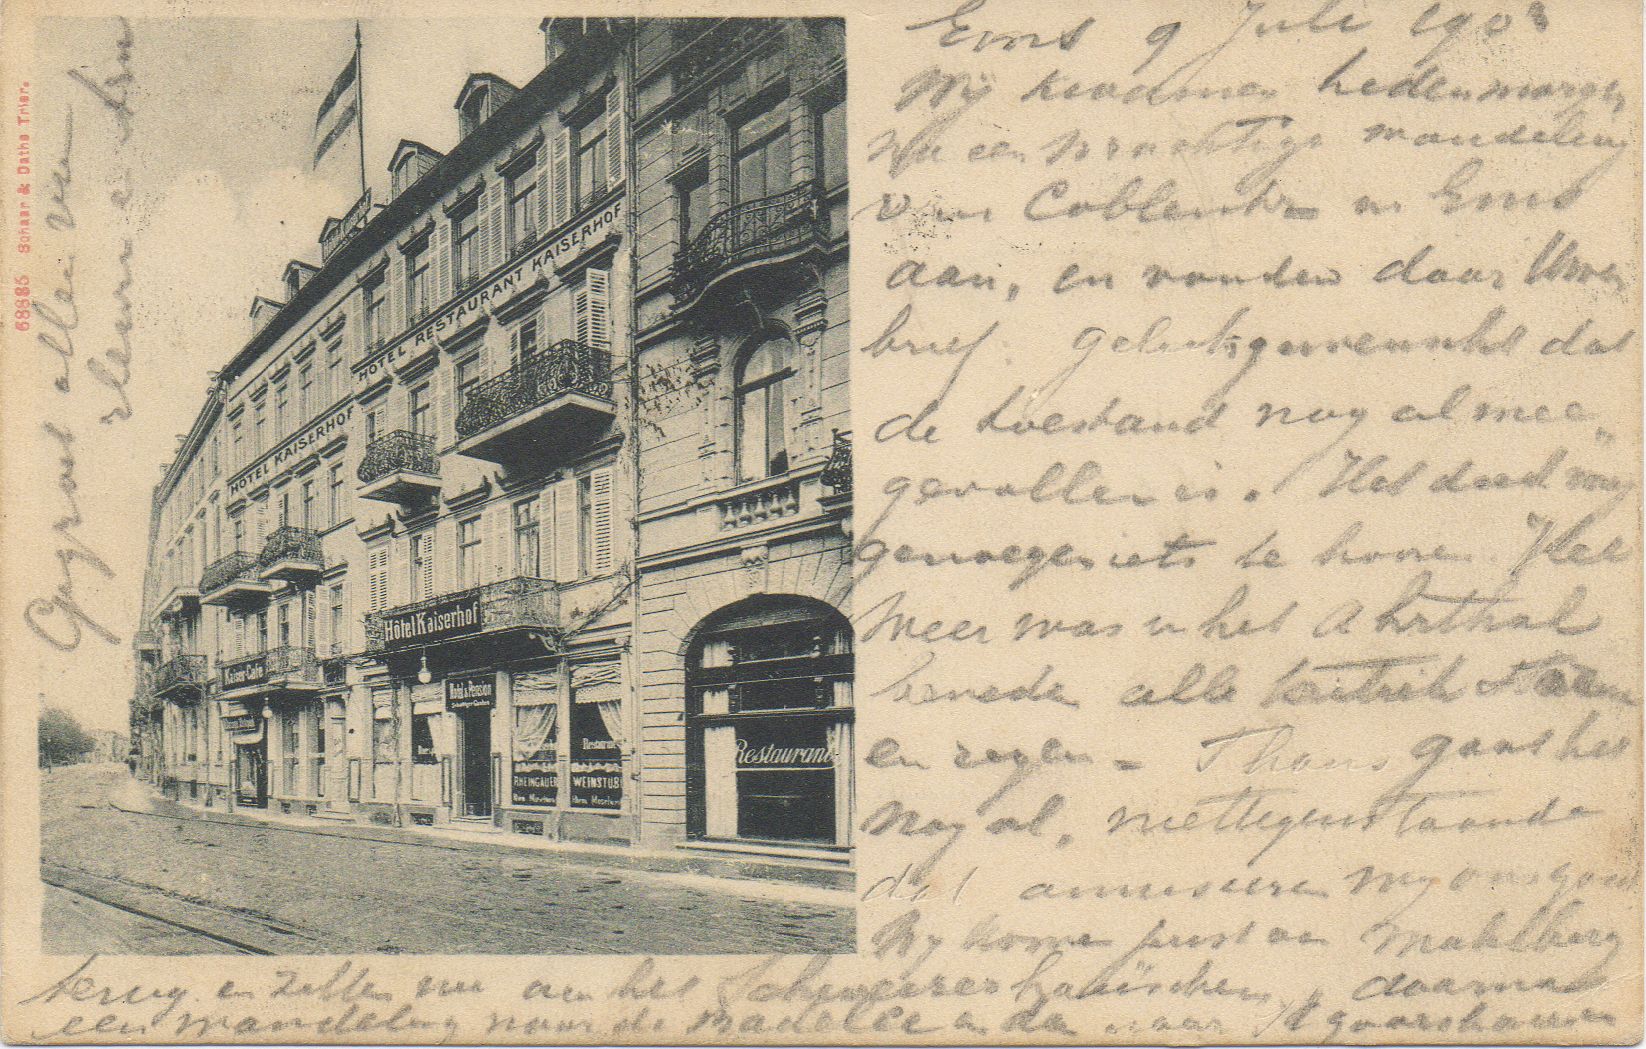 Ems 9 Juli 190
Wij kwamen hedenmorgen
na een prachtige wandeling
van Coblentz in Ems
aan, en vonden daar Uwen
brief. Geluk gewenscht dat
de toestand nog al mee-
gevallen is. Het deed mij
genoegen iets te hooren. Het
weer was in het Ahrthal
beneden alle
en regen - Thans gaat het
nog al, niettegenstaande
dat amuseeren wij ons goed.
Wij komen juist van Mahlberg
terug en zitten nu aan het Schweizerhäuschen, daarna
een wandeling naar de en dan naar St goarshausen
Gegroet allen van
HOTEL RESTAURANT KAISERHOF
HOTEL KAISERHOF
Hôtel Kaiserhof
Kaiser-Café
Hotel & Pension
Schattiger Garten
Restaurant
RHEINGAUER
WEINSTUBE
Restaurant
68885 Schaar & Dathe Trier.